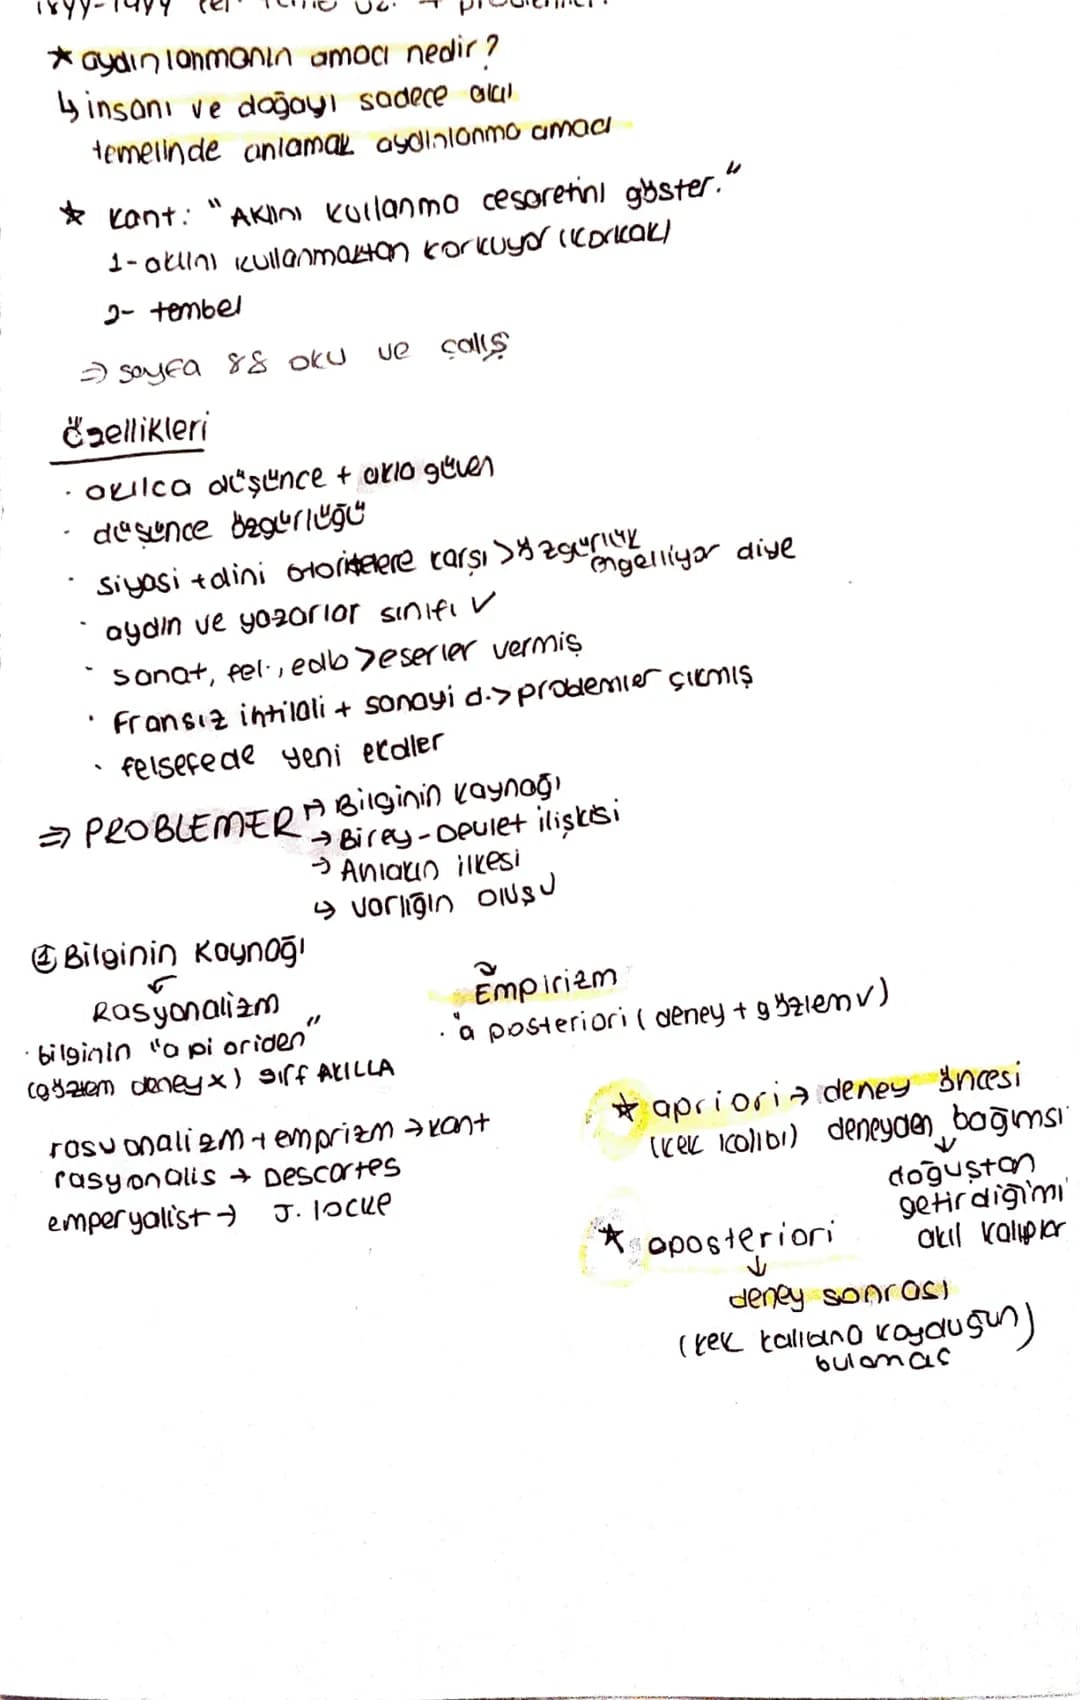 18yy-19yy fel.
★ aydınlanmanın amacı nedir?
↳ insanı ve doğayı sadece akıl
temelinde anlamak aydınlanma amacı
★ Kant: "Aklını kullanma cesaretini göster."
1- aklını kullanmaktan korkuyor (korkak)
2- tembel
⇒ sayfa 88 oku ve çalış
Özellikleri
· akılca düşünce + akla güven
· düşünce özgürlüğü
· siyasi + dini otoritelere karşı > özgürlük engelliyor diye
· aydın ve yazarlar sınıfı ✓
· sanat, fel., edb > eserler vermiş
· Fransız ihtilali + sanayi d. > problemler çıkmış
· felsefede yeni ekoller
⇒ PROBLEMER → Bilginin kaynağı
→ Birey-Devlet ilişkisi
→ Ahlakın ilkesi
↳ varlığın oluşu
① Bilginin Kaynağı
Rasyonalizm
· bilginin "a pi oriden"
(gözlem deney x) sırf AKILLA
Empirizm
· "a posteriori (deney + gözlem ✓)
rasyonalizm + emprizm → kant
rasyonalis → Descartes
emperyalist → J. locke
★ apriori → deney öncesi
(kek kalıbı) deneyden bağımsı
↓
doğuştan
getirdiğimi
akıl kalıplar
★ aposteriori
↓
deney sonrası
(kek kalıbına koyduğun)
bulamaç